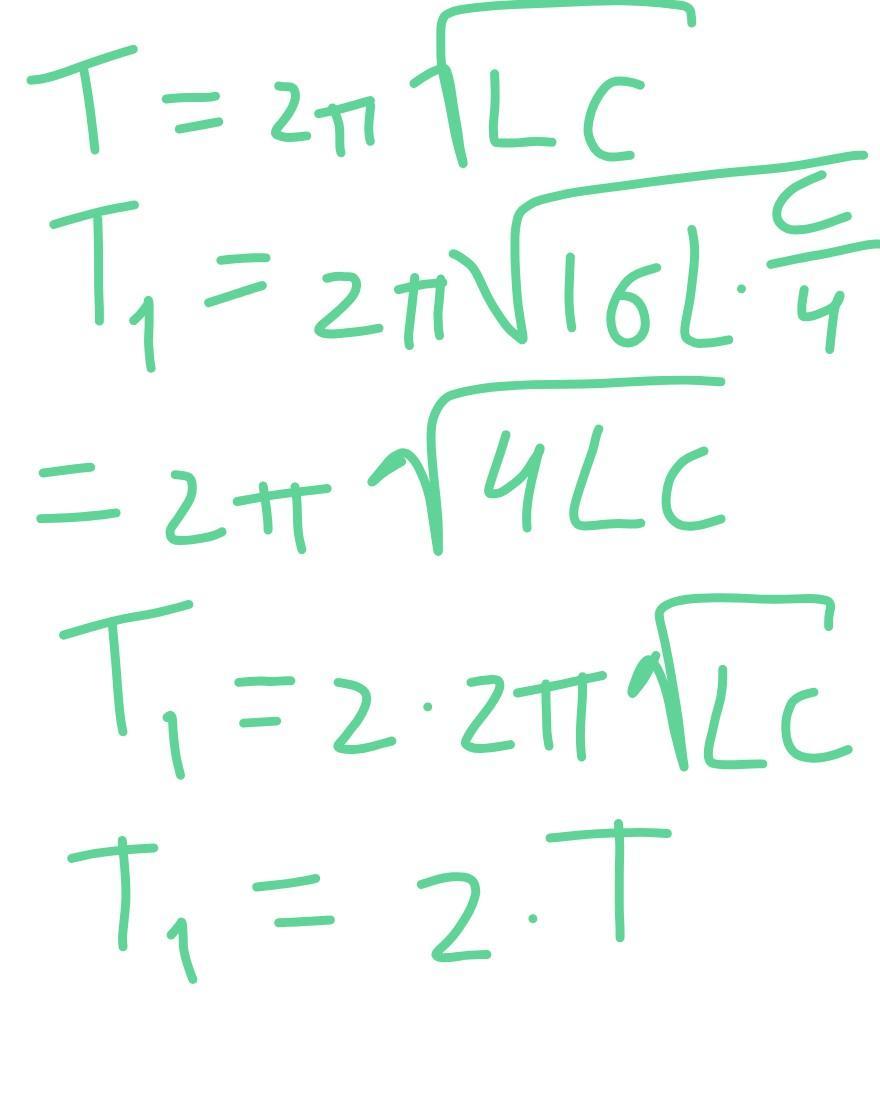 T = 2π√LC
T₁ = 2π√16L·C/4
= 2π√4LC
T₁ = 2·2π√LC
T₁ = 2·T